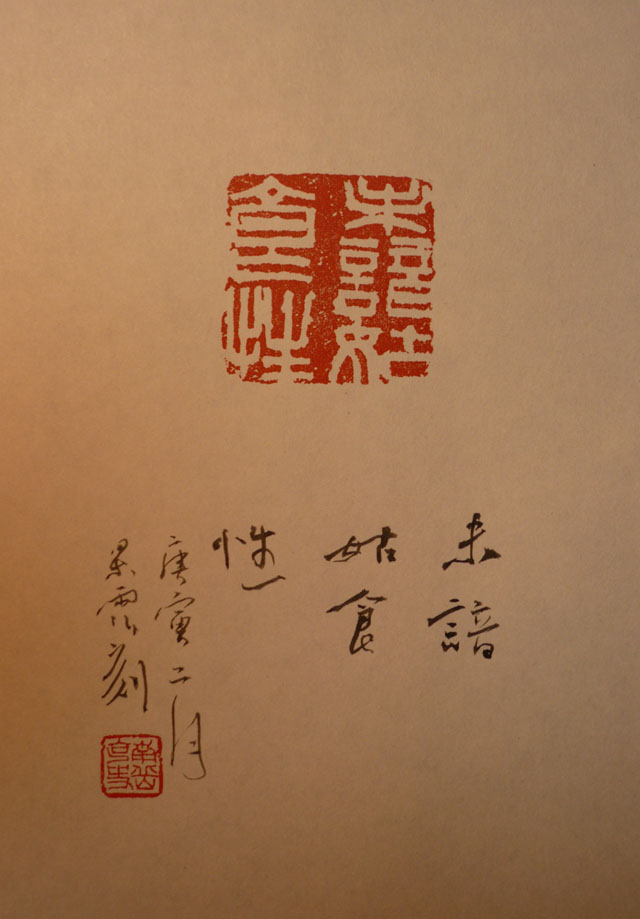 未諳姑
食性
未諳
姑食
性
庚寅二月
刻